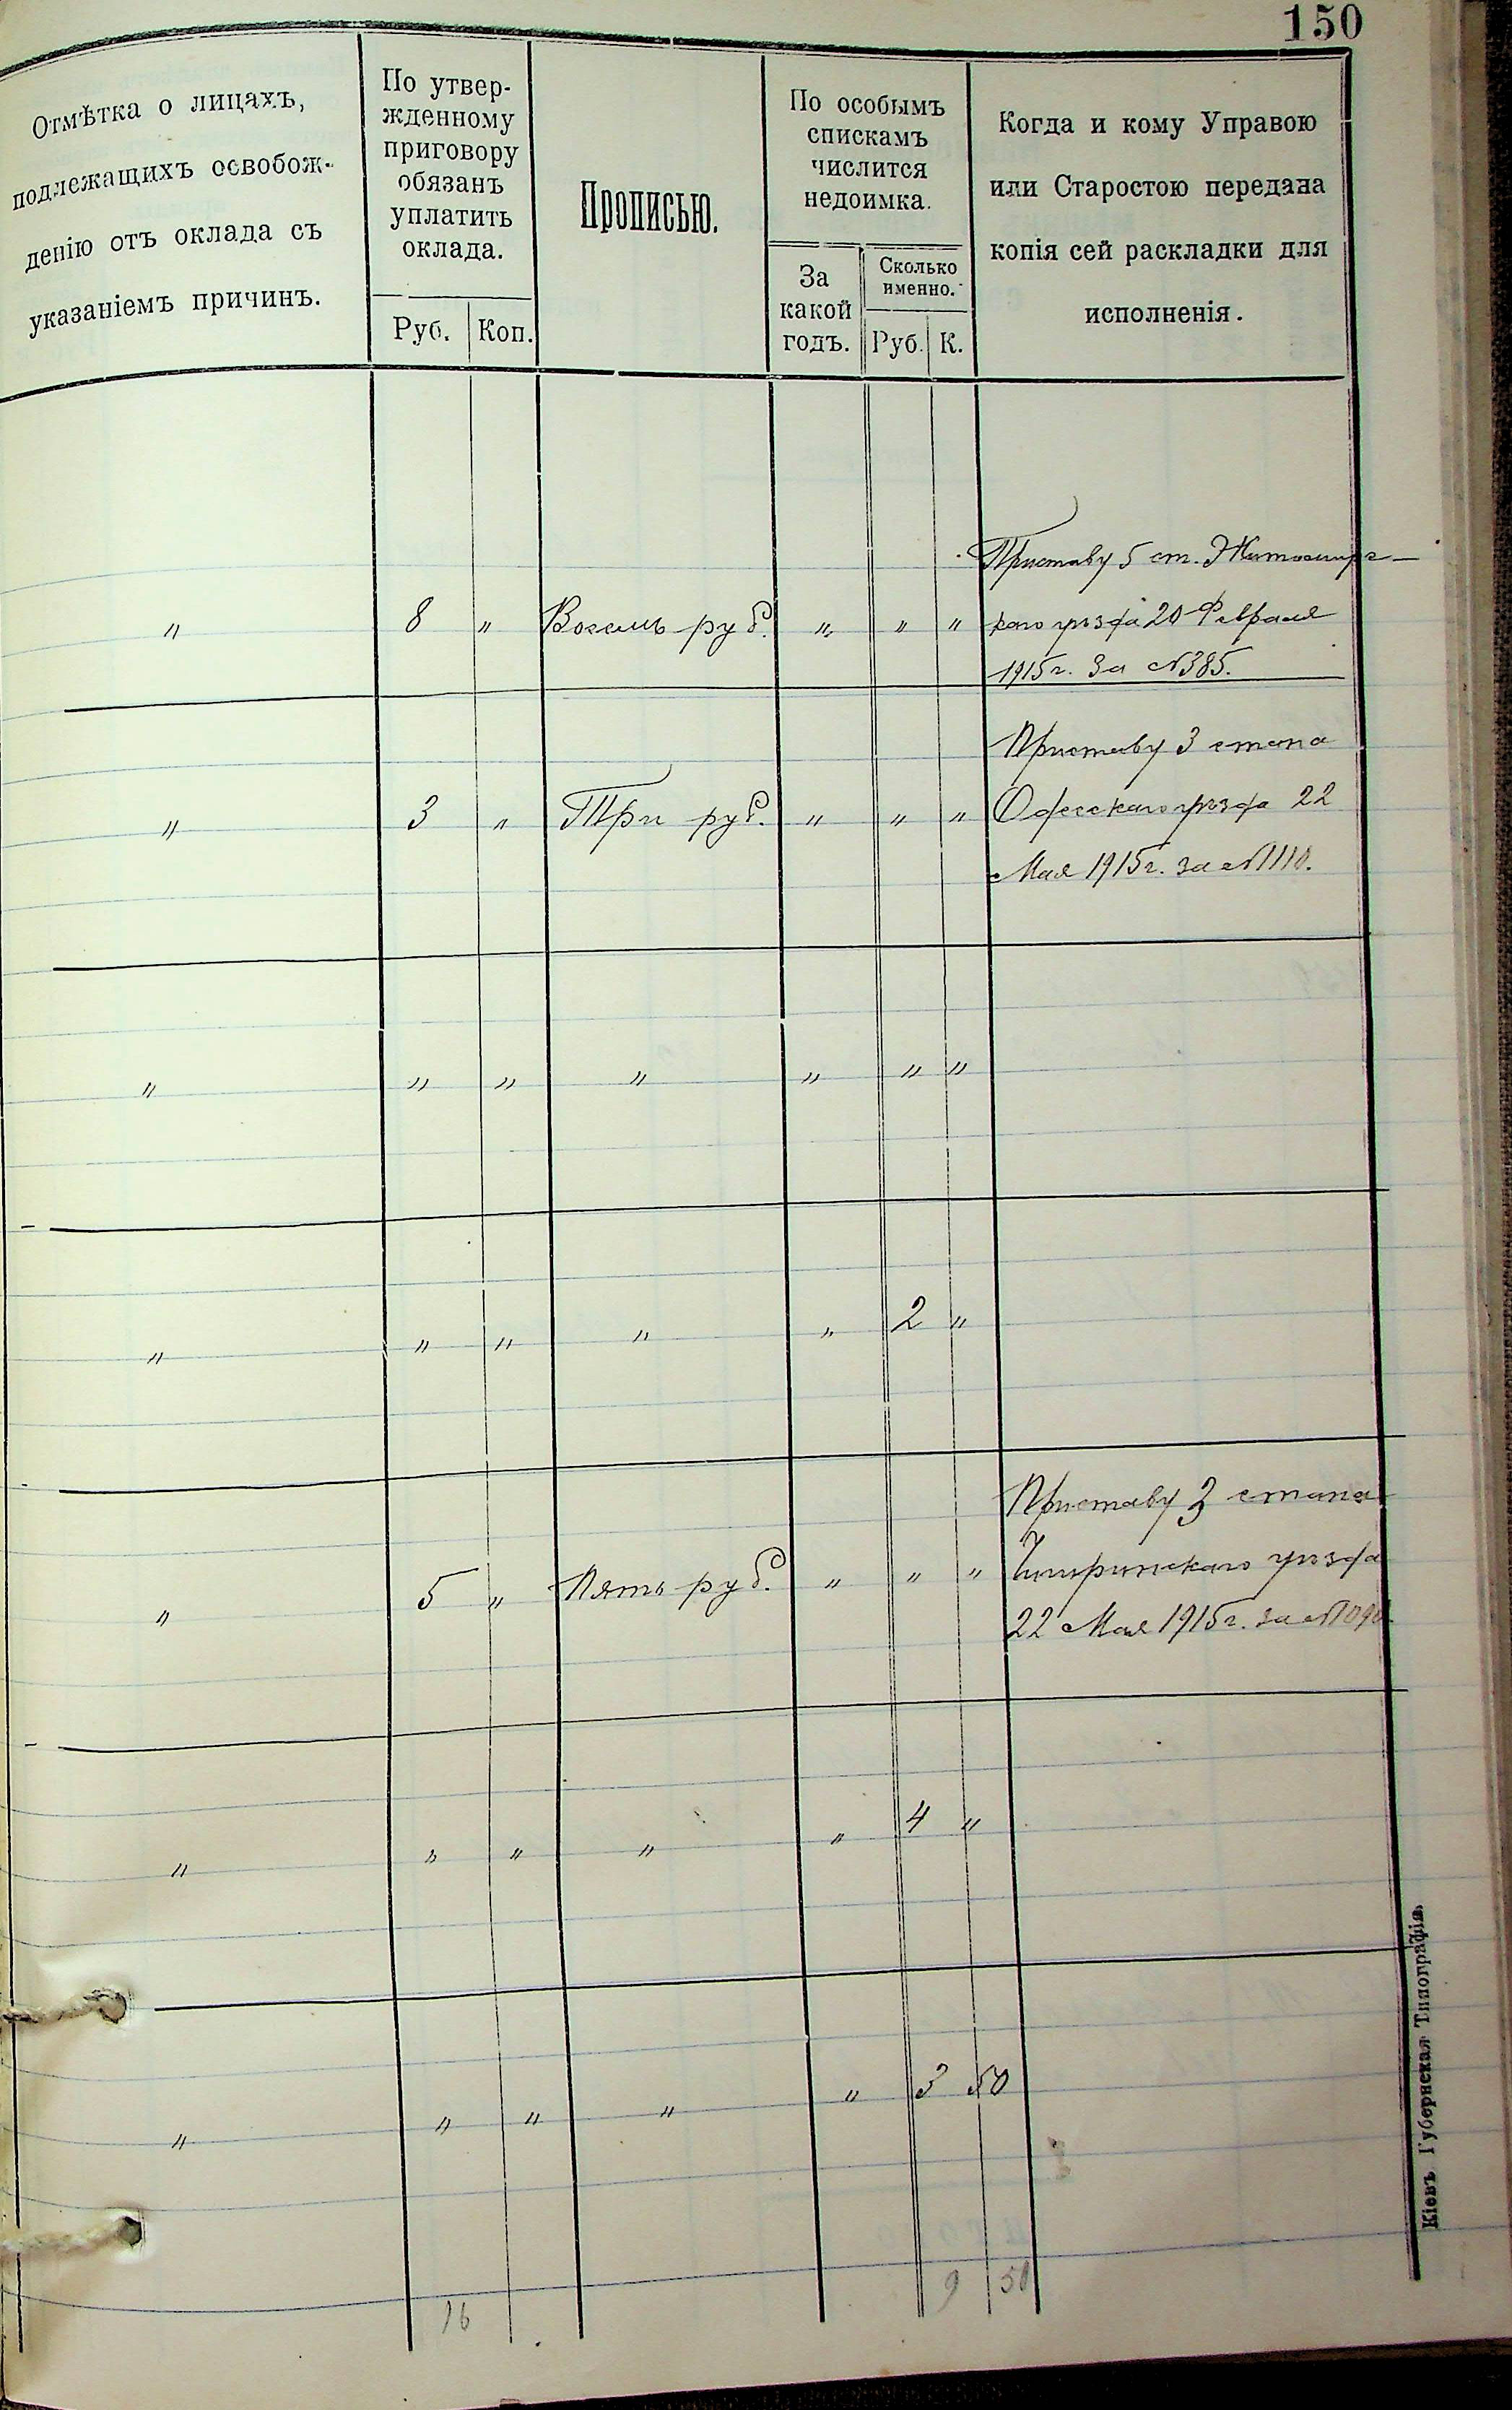 150
Отмѣтка о лицахъ,
подлежащихъ освобож-
денію отъ оклада съ
указаніемъ причинъ.
По утвер-
жденному
приговору
обязанъ
уплатить
оклада.
Руб. Коп.
Прописью.
По особымъ
спискамъ
числится
недоимка.
За
какой
годъ.
Сколько
именно.
Руб. К.
Когда и кому Управою
или Старостою передана
копія сей раскладки для
исполненія.
Приставу 5 ст. Житомирс-
" 8 " Восемь руб. " " " каго уѣзда 20 Февраля
1915г. за №385.
Приставу 3 стана
" 3 " Три руб. " " " Одесскаго уѣзда 22
Мая 1915г. за №1110.
" " " " " " "
" " " " " 2 "
Приставу 3 стана
" 5 " Пять руб. " " " Чигиринскаго уѣзда
22 Мая 1915г. за
" " " " " 4 "
" " " " " 3 50
16 9 50
Кіевъ Губернская Типографія.